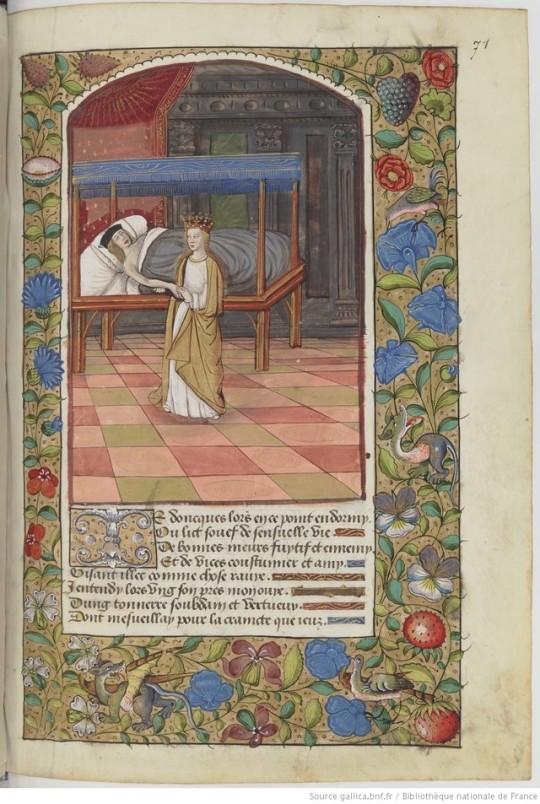 71
Ie doncques lors en ce point endormy
Ou lict souef de sensuelle vie
De bonnes meurs fuytif et ennemy
Et de vices coustumier et amy
Gisant illec comme chose ravie
Jentendy lors ung son pres mon ouye
Dung tonnerre soubdain et vertueux
Dont mesveillay pour la craincte que ieuz
Source gallica.bnf.fr / Bibliothèque nationale de France